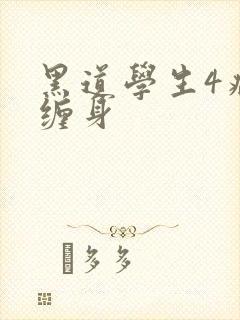 黑道學生4
缠身
多多